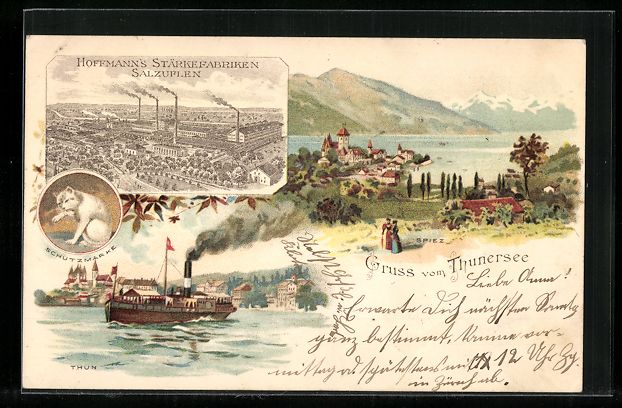 HOFFMANN'S STÄRKEFABRIKEN
SALZUFLEN
SCHUTZMARKE
SPIEZ
Gruss vom Thunersee
THUN
Liebe Anna!
Erwarte Dich nächsten Samstg
ganz bestimmt, komme vor-
mittag od spätestens mit 12 Uhr Zg.
in Zürich ab.